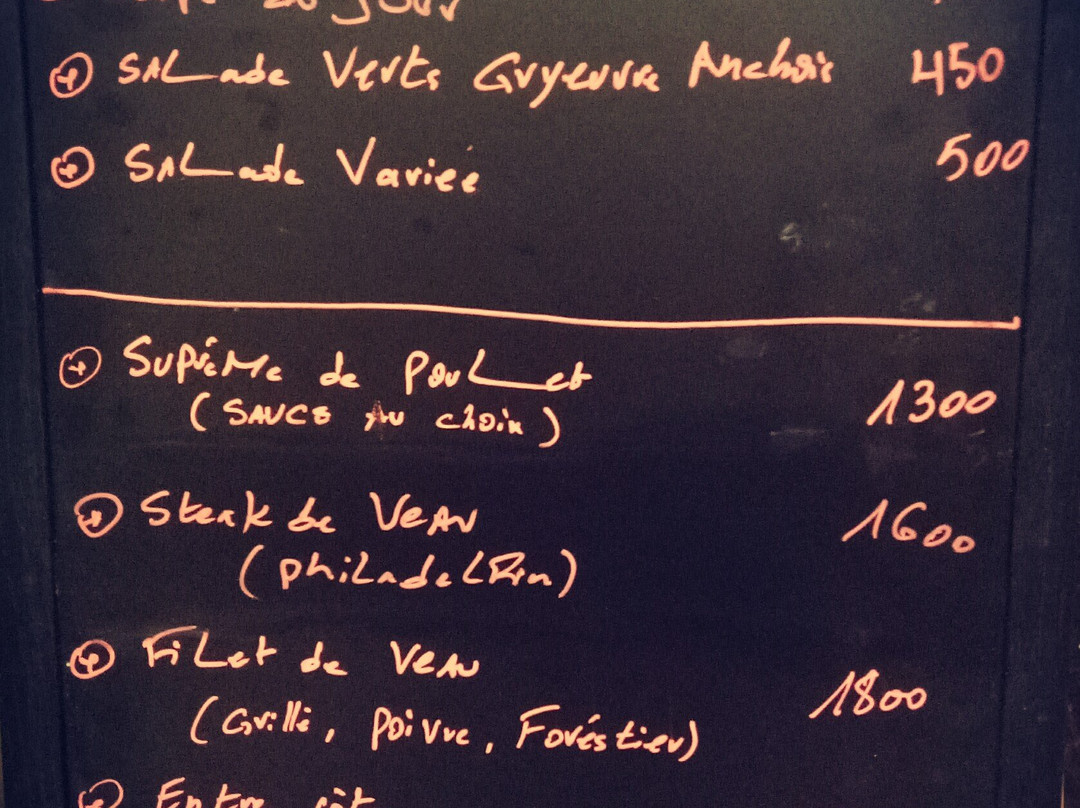 du Jour
SALade Verte Gruyeure Anchois 450
SALade Variée 500
SuprêMe de PouLet
(SAUCE AU choix) 1300
Steak de VeAu 1600
(PhiLadeLPhia)
FiLet de VeAu
(Grillé, Poivre, Foréstier) 1800
Entre côt